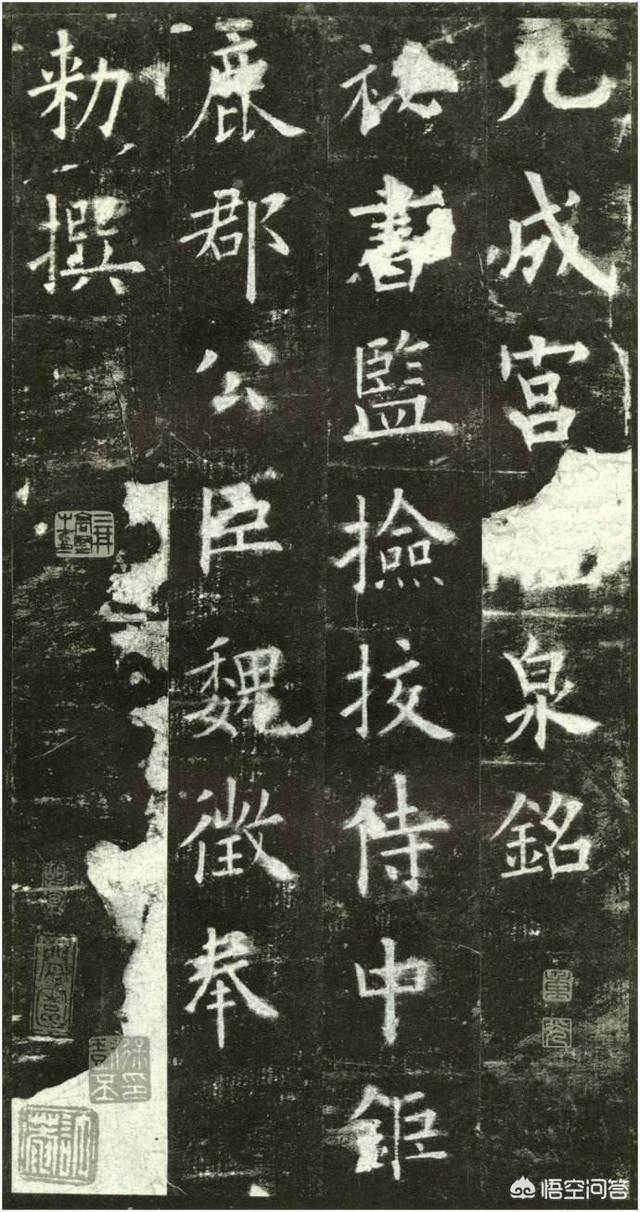 九成宮泉銘
祕書監撿挍侍中鉅
鹿郡公臣魏徵奉
勅撰
悟空问答